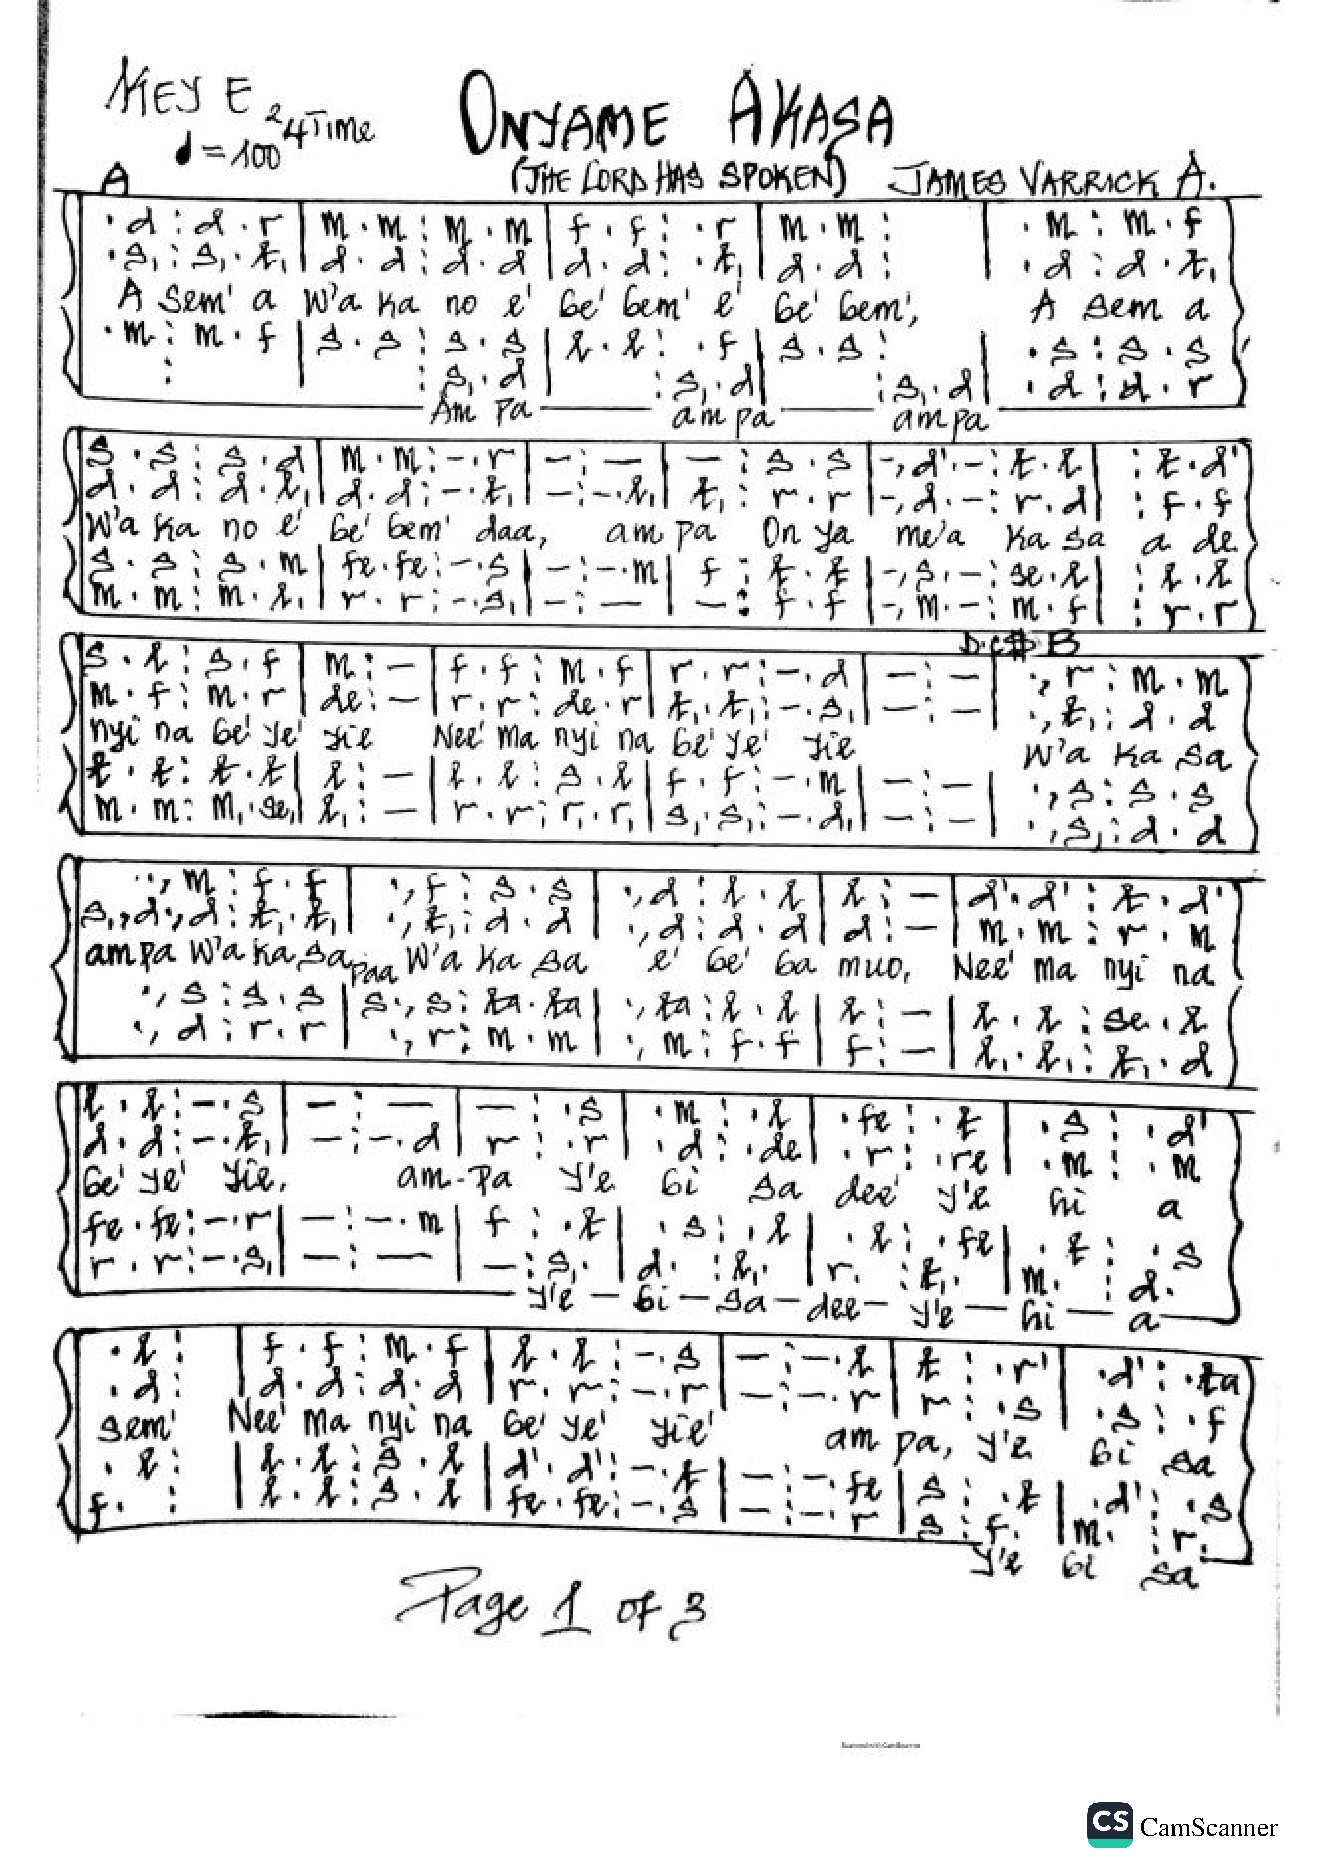 KEY E 2 4 TIME
♩=100
ONYAME AKASA
(THE LORD HAS SPOKEN) JAMES VARRICK A.
A
.d : d.r | m.m : m.m | f.f : .r | m.m : | .m : m.f
.s, : s,.t, | d.d : d.d | d.d : .t, | d.d : | .d : d.t,
A sem' a w'a ka no e' be' bem' e' be' bem', A sem a
.m : m.f | s.s : s.s | l.l : .f | s.s : | .s : s.s
: | : s,.d | : s,.d | : s,.d | .d : d.r
Am pa ampa ampa
s.s : s.d | m.m : -.r | - : - | - : s.s | -,d'.- : t.l | : t.d'
d.d : d.l, | d.d : -.t, | - : -.l, | t, : r.r | -,d.- : r.d | : f.f
w'a ka no e' be' bem' daa, am pa On ya me'a ka sa a de
s.s : s.m | fe.fe : -.s | - : -.m | f : t.t | -,s.- : se.l | : l.l
m.m : m.l, | r.r : -.s, | - : - | - : f.f | -,m.- : m.f | : r.r
D.C $ B
s.l : s.f | m : - | f.f : m.f | r.r : -.d | - : - | .,r : m.m
m.f : m.r | de : - | r.r : de.r | t,.t, : -.s, | - : - | .,t, : d.d
nyi na be' ye' yie Nee' ma nyi na be' ye' yie w'a ka sa
t.t : t.t | l : - | l.l : s.l | f.f : -.m | - : - | .,s : s.s
m.m : m,.se, | l, : - | r.r : r,.r, | s,.s, : -.d, | - : - | .,s, : d.d
.,m : f.f | .,f : s.s | .,d : l.l | l : - | d'.d' : t.d'
s,.,d.,d : t,.t, | .,t, : d.d | .,d : d.d | d : - | m.m : r.m
ampa w'a ka sa paa w'a ka sa e' be' ba muo, Nee' ma nyi na
.,s : s.s | s.,s : ta.ta | .,ta : l.l | l : - | l.l : se.l
.,d : r.r | .,r : m.m | .,m : f.f | f : - | l,.l, : t,.d
l.l : -.s | - : - | - : .s | .m : .l | .fe : .t | .s : .d'
d.d : -.t, | - : -.d | r : .r | .d : .de | .r : .re | .m : .m
be' ye' yie, am-pa y'e bi sa dee' y'e hi a
fe.fe : -.r | - : -.m | f : .t | .s : .l | .l : .fe | .t : .s
r.r : -.s, | - : - | - : s,. | d. : l,. | r. : t,. | m. : d.
y'e - bi - sa - dee - y'e - hi - a
.l : | f.f : m.f | l.l : -.s | - : -.l | t : .r' | .d' : .ta
.d : | d.d : d.d | r.r : -.r | - : -.r | r : .s | .s : .f
sem' Nee' ma nyi na be' ye' yie' am pa, y'e bi sa
.l : | l.l : s.l | d'.d' : -.t | - : -.fe | s : .t | .d' : .s
f. : | l.l : s.l | fe.fe : -.s | - : -.r | s : f. | m. : r.
y'e bi sa
Page 1 of 3
CS CamScanner